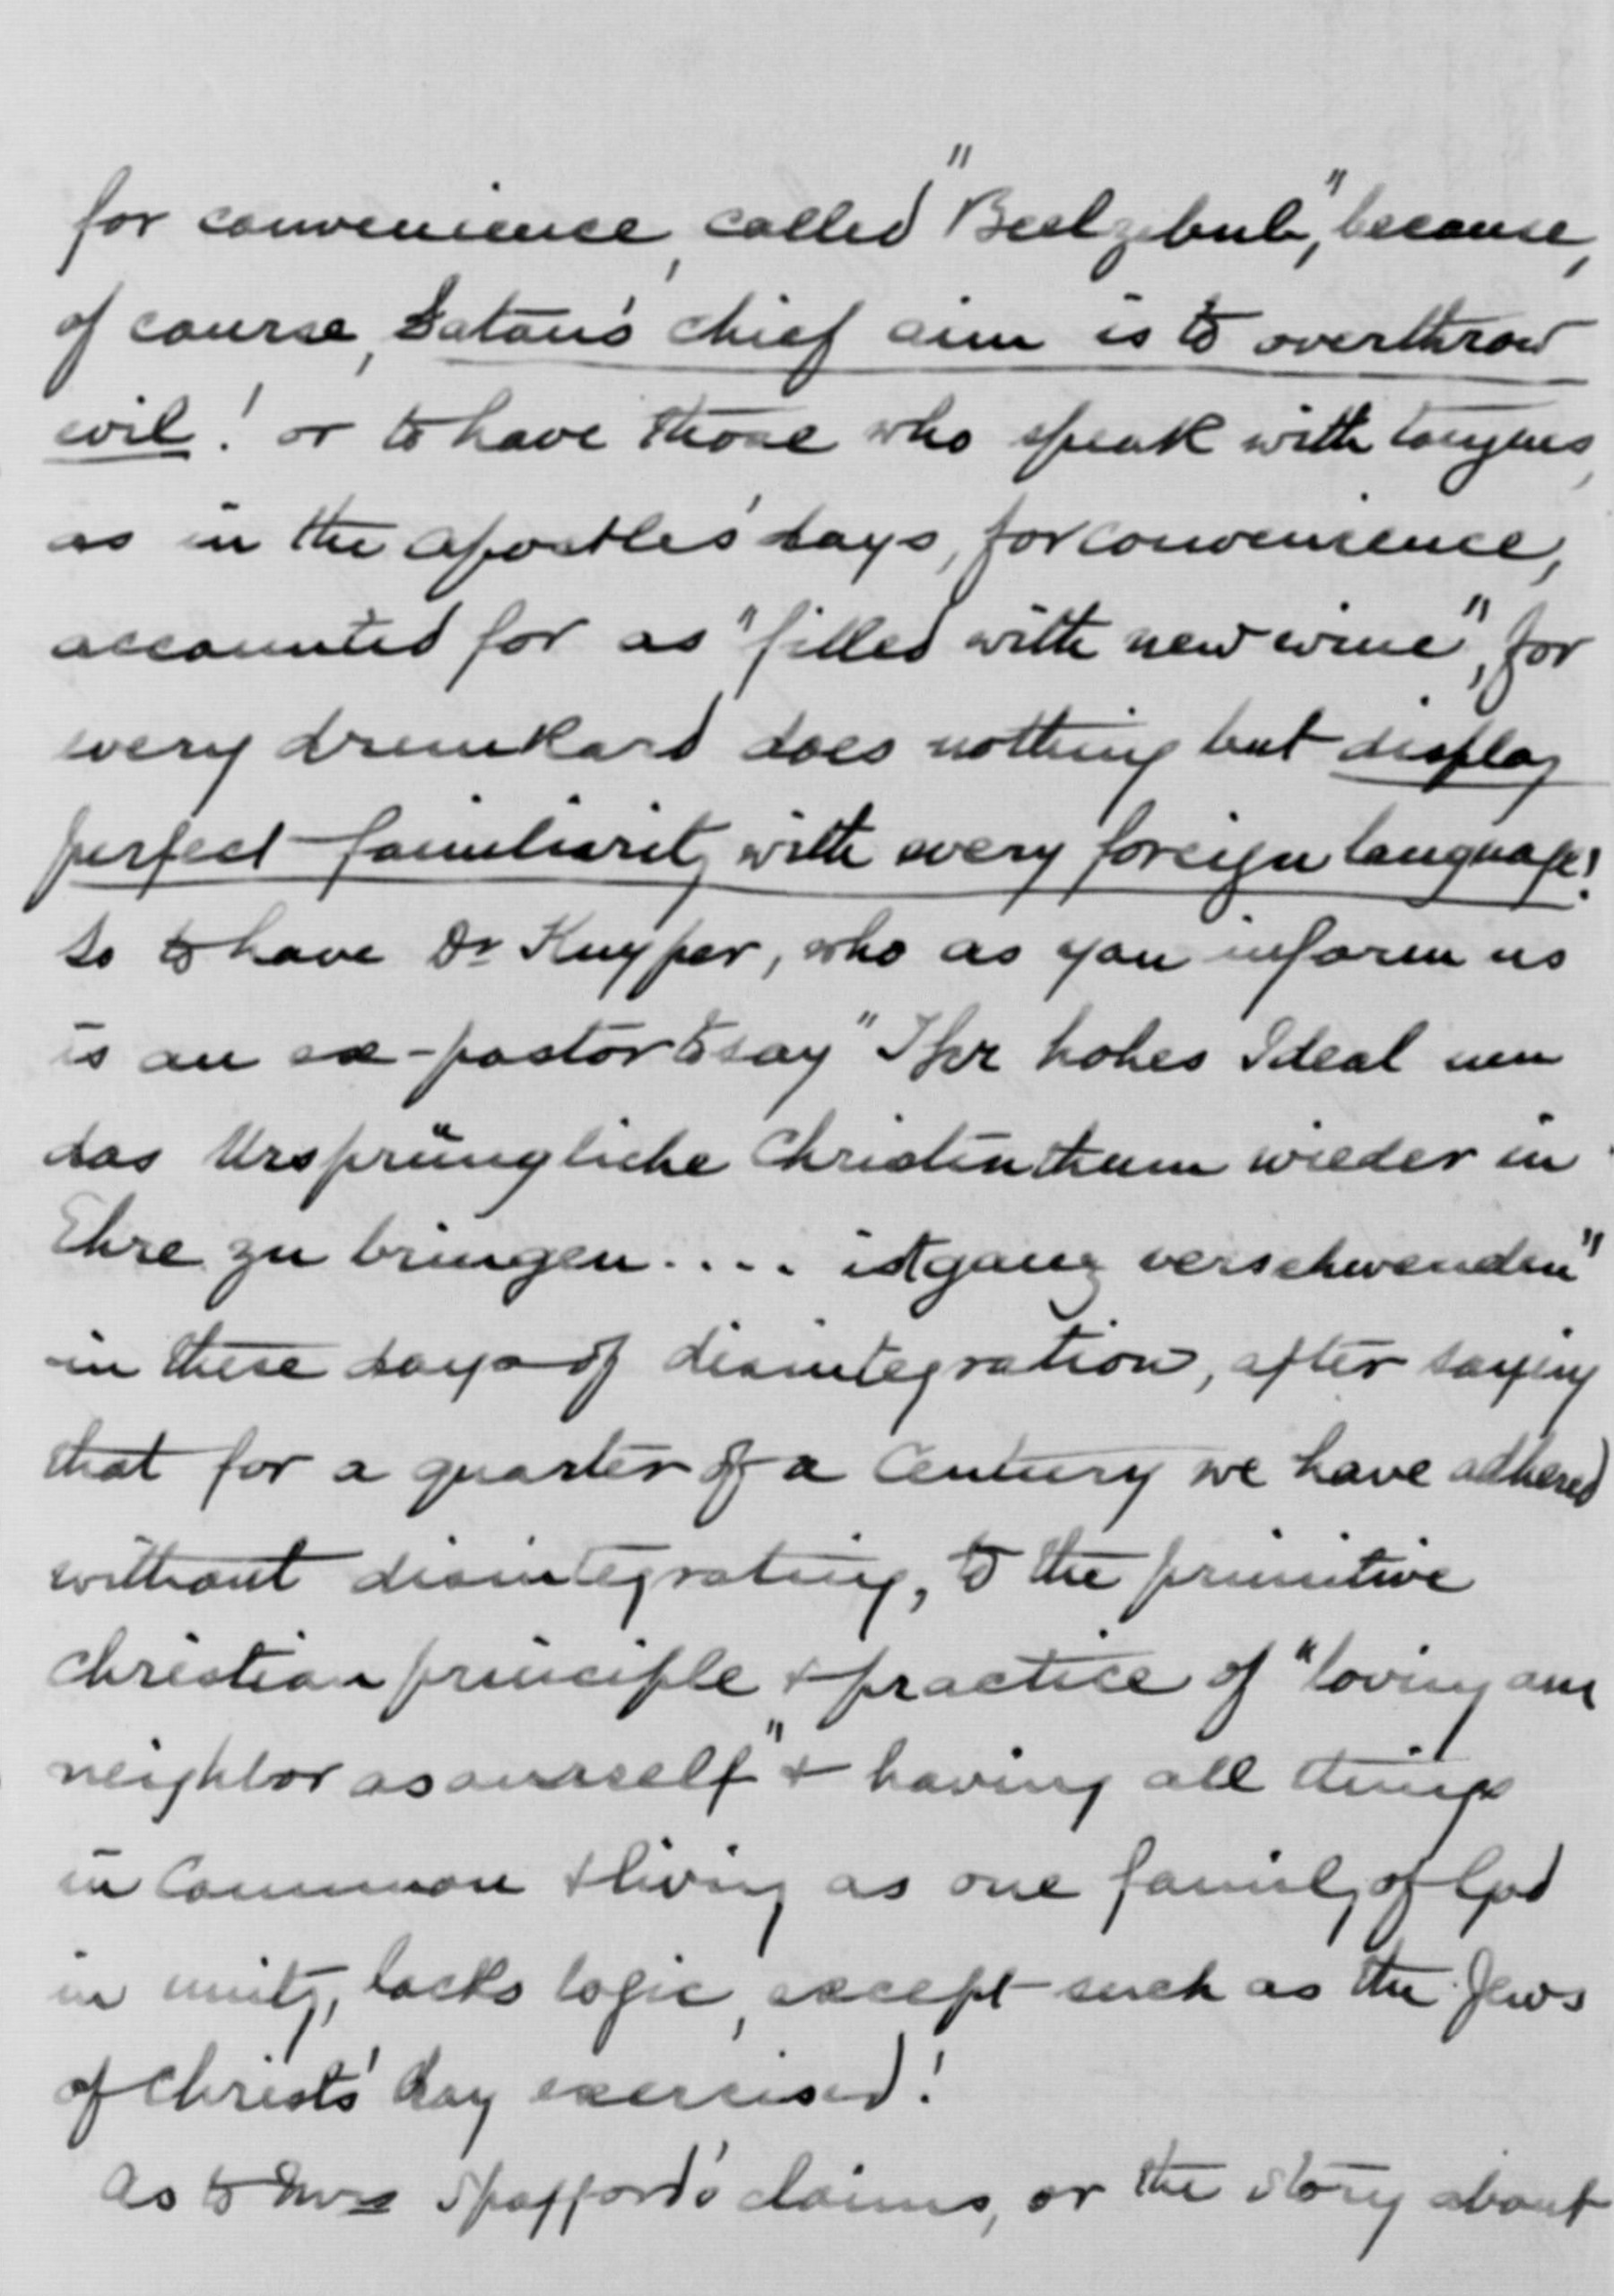 for convenience, called "Beelzebub," because,
of course, Satan's chief aim is to overthrow
evil! or to have those who speak with tongues,
as in the apostles' days, for convenience,
accounted for as "filled with new wine", for
every drunkard does nothing but display
perfect familiarity with every foreign language!
So to have Dr Kuyper, who as you inform us
is an ex-pastor to say "Ihr hohes Ideal um
das Ursprüngliche Christenthum wieder in
Ehre zu bringen.... ist ganz verschwenden"
in these days of disintegration, after saying
that for a quarter of a Century we have adhered
without disintegrating, to the primitive
Christian principle & practice of "loving our
neighbor as ourself" & having all things
in Common & living as one family of God
in unity, lacks logic, except such as the Jews
of Christs' day exercised!
As to Mrs Spafford's claims, or the story about